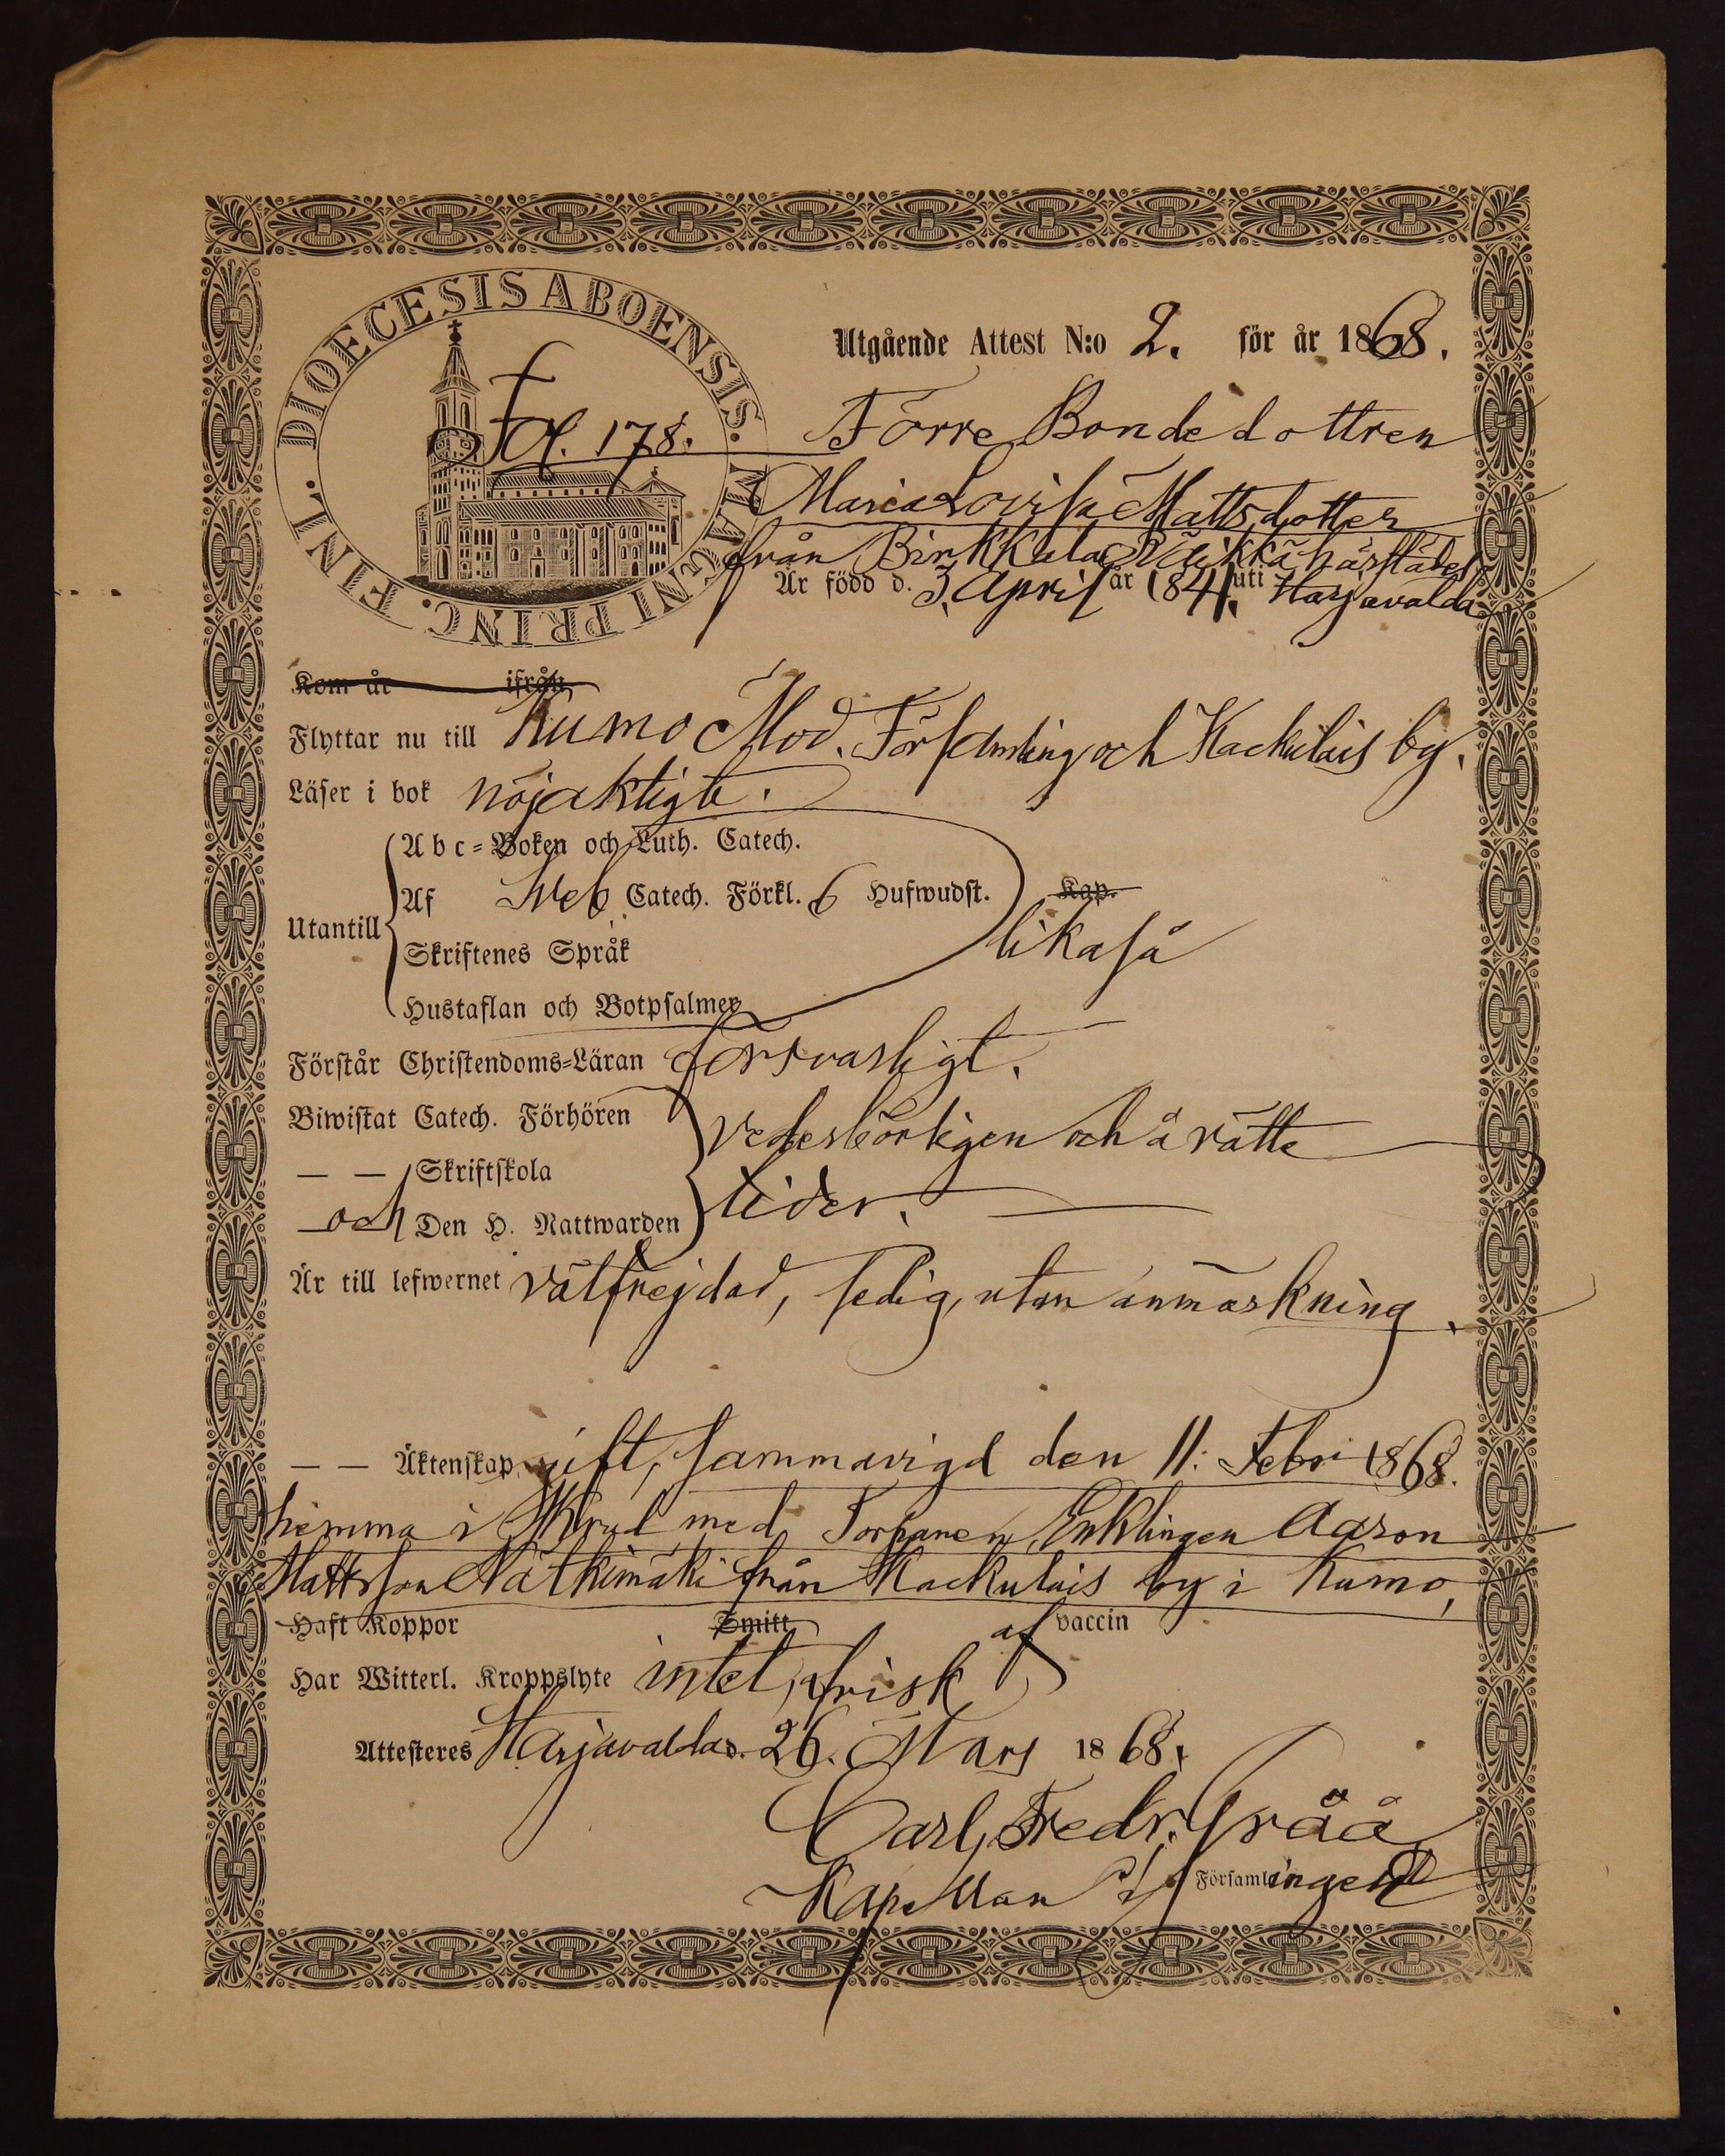 FINL. DIOECESIS ABOENSIS. MAGNI PRINC.
Utgående Attest N:o 2. för år 1868.
Fol. 178. Förre Bondedottren
Maria Lovisa Mattsdotter
från Birkkala härstädes
Är född d. 3. April år 1841. uti Harjavalda
Kom år ifrån
Flyttar nu till Kumo Mod. Församling och Kackulais by.
Läser i bok nöjaktigt.
Abc-Boken och Luth. Catech.
Utantill Af Sveb. Catech. Förkl. 6 Hufwudst. Kap.
Skriftenes Språk likaså
Hustaflan och Botpsalmer
Förstår Christendoms-Läran försvarligt.
Biwistat Catech. Förhören vederbörligen och å rätte
— — Skriftskola
och Den H. Nattwarden tider.
Är till lefwernet välfrejdad, sedig, utan anmärkning.
— — Äktenskap gift, sammanvigd den 11. Febr 1868.
hemma i med Torparen Enklingen Aaron
Mattsson Nälkimäki från Kackulais by i Kumo,
Haft Koppor Smitt af vaccin
Har Witterl. Kroppslyte intet, frisk
Attesteres Harjavalda d. 26. Mars 1868.
Carl Fredr. Gråå
Kapellan i Församlingen